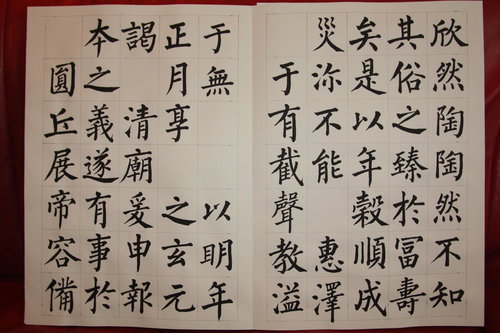 欣然陶陶然不知
其俗之臻於冨壽
矣是以年穀順成
災沵不能 惠澤
于有截聲教溢
于無 以明年
正月享 之玄元
謁 清廟爰申報
夲之義遂有事於
圓丘展帝容備